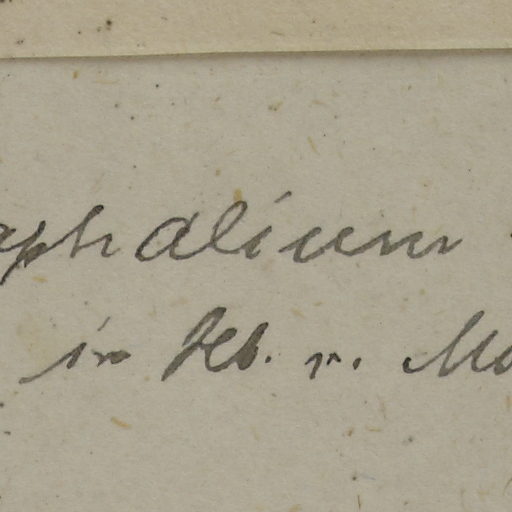 aphalium
in Hb. v. Mo